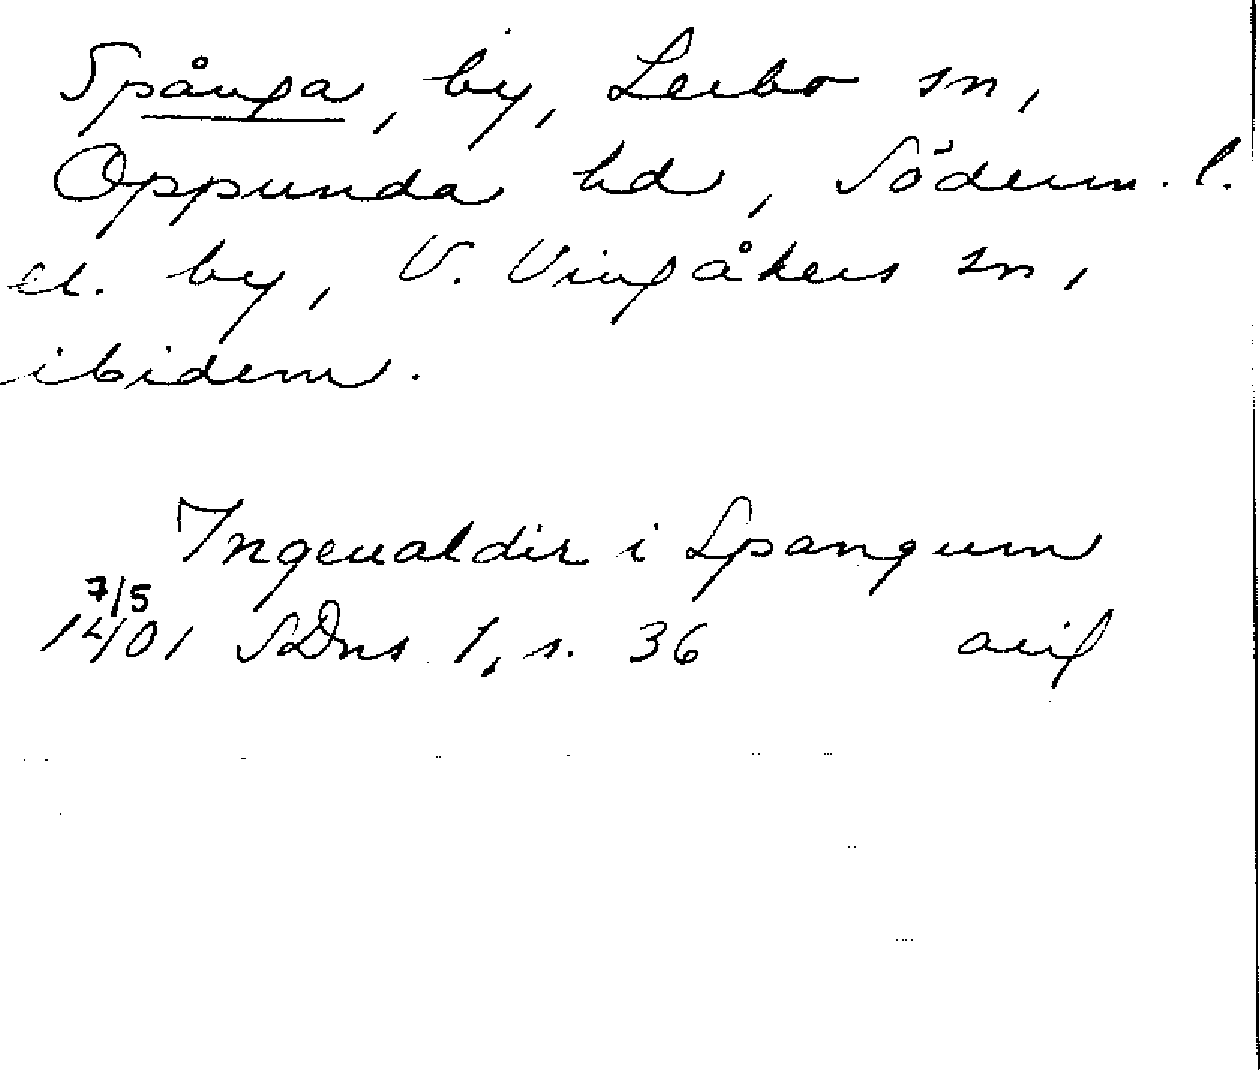 Spånga, by, Lerbo sn,
Oppunda hd, Söderm. l.
el. by, V. Vingåkers sn,
ibidem.
Ingeualdir i Spangum
7/5
1401 SDns 1, s. 36 avif